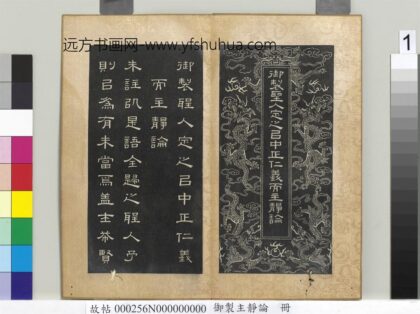 远方书画网-www.yfshuhua.com
1
御製聖人定之㠯中正仁義而主靜論
御製聖人定之㠯中正仁義
而主靜論
朱註是語全歸之聖人予
則㠯為有未當焉蓋士希賢
故帖 000256N000000000 御製主靜論 冊